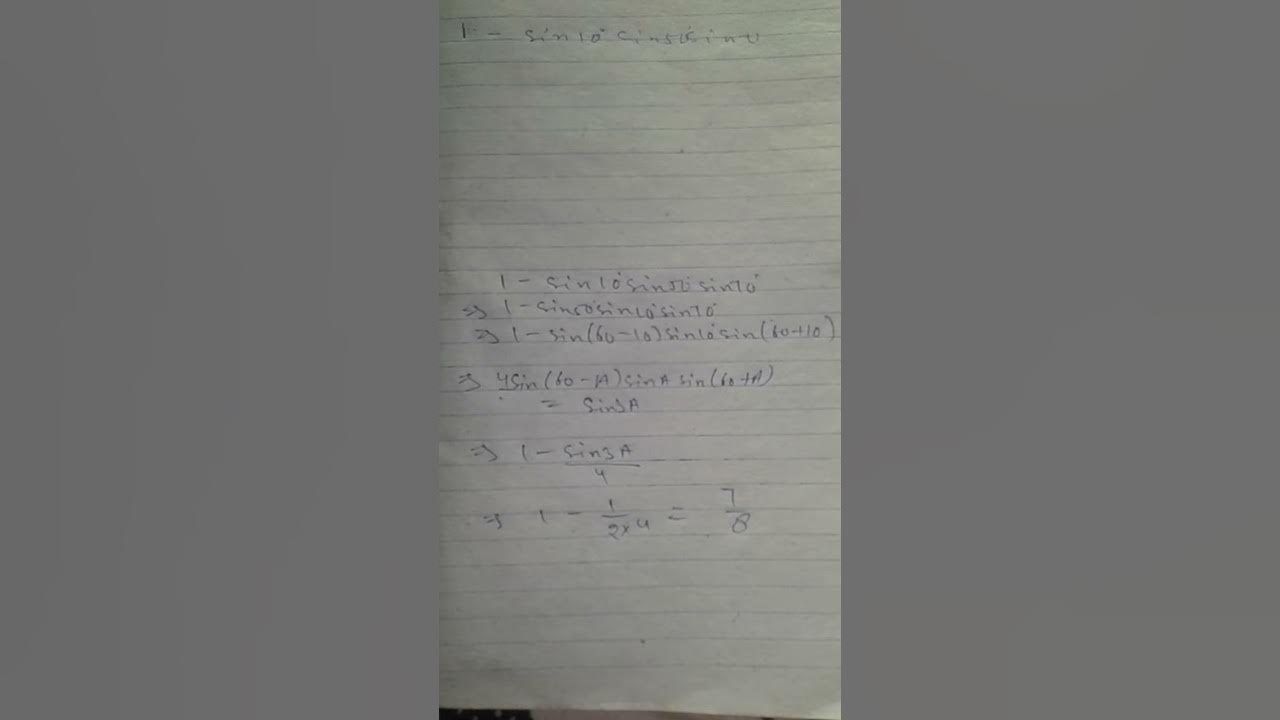 1 - sin10° sin50° sin
1 - sin10° sin50° sin70°
⇒ 1 - sin50° sin10° sin70°
⇒ 1 - sin(60-10) sin10° sin(60+10)
⇒ 4sin(60-A) sinA sin(60+A)
= sin3A
⇒ 1 - sin3A/4
⇒ 1 - 1/2×4 = 7/8